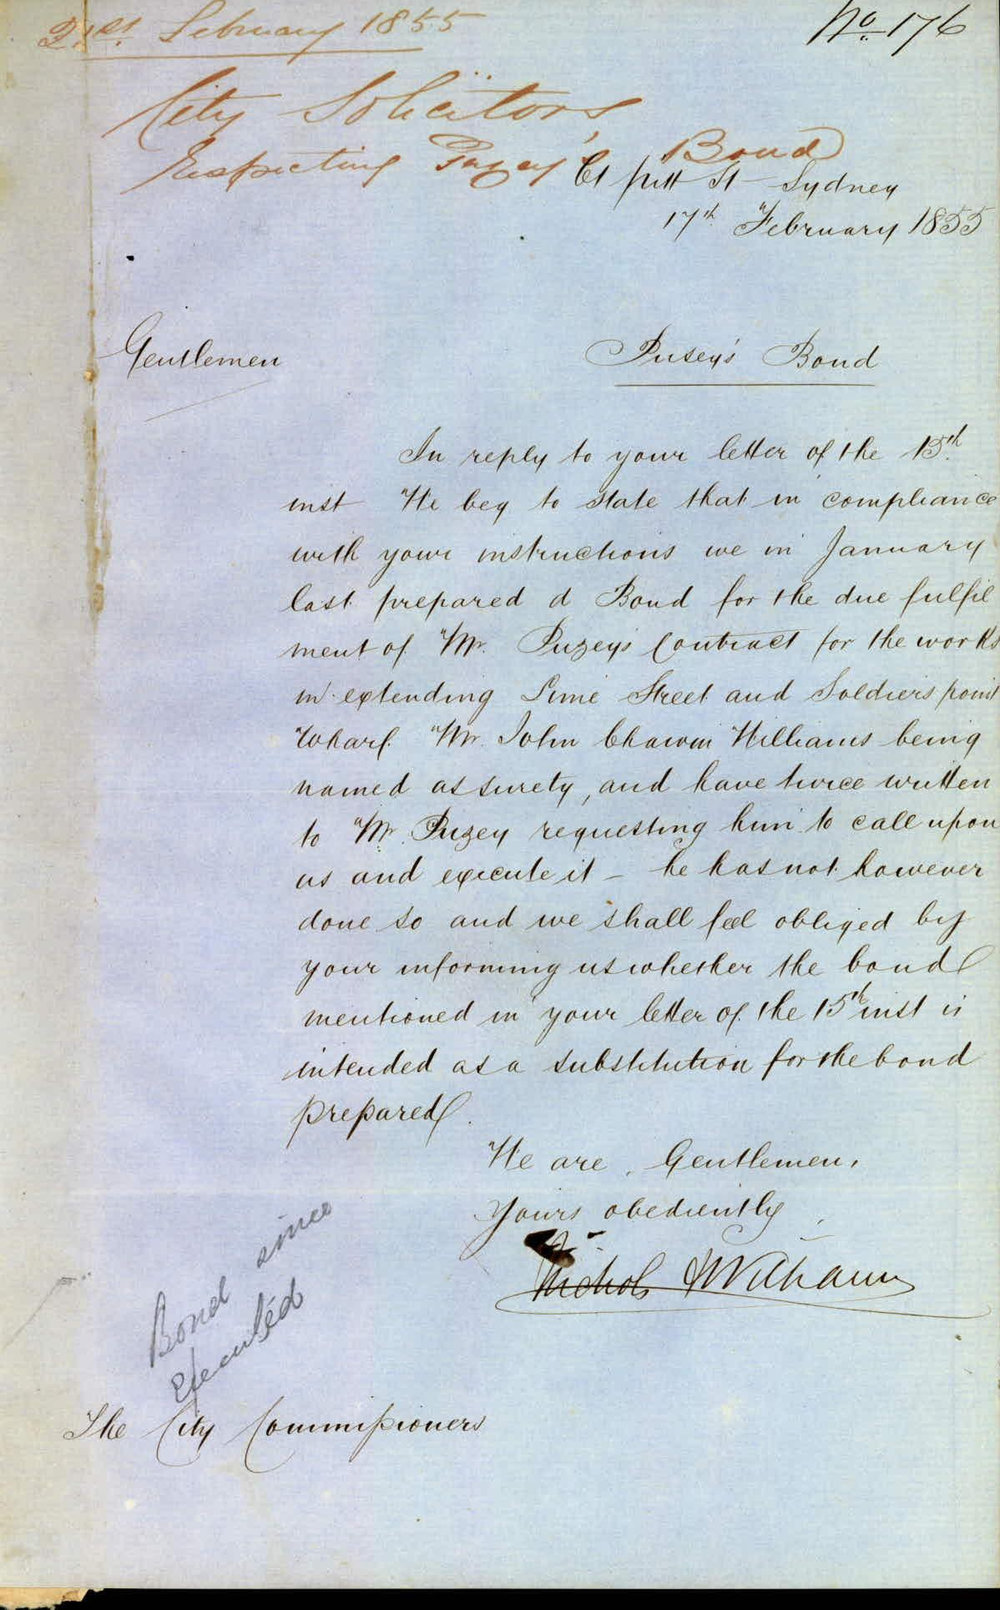 21st. February 1855
No. 176
City Solicitors
Respecting Puzey's Bond
Pitt St Sydney
17th February 1855
Gentlemen
Pusey's Bond
In reply to your letter of the 15th
inst We beg to state that in compliance
with your instructions we in January
last prepared a Bond for the due fulfil
ment of Mr. Puzey's Contract for the works
in extending Lime Street and Soldiers point
Wharf. Mr. John Williams being
named as surety, and have twice written
to Mr. Puzey requesting him to call upon
us and execute it - he has not however
done so and we shall feel obliged by
your informing us whether the bond
mentioned in your letter of the 15th inst is
intended as a substitution for the bond
prepared.
We are, Gentlemen,
Yours obediently
Nichols & Williams
Bond since
executed
The City Commissioners